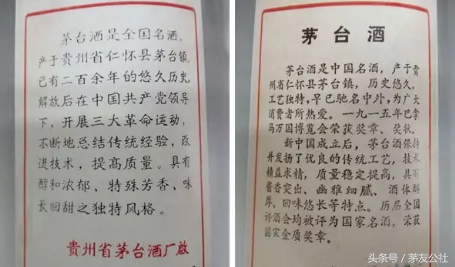 茅台酒是全国名酒，
产于贵州省仁怀县茅台镇，
已有二百余年的悠久历史，
解放后在中国共产党领导
下，开展三大革命运动，
不断地总结传统经验，改
进技术，提高质量。具有
醇和浓郁、特殊芳香、味
长回甜之独特风格。
贵州省茅台酒厂啟
茅台酒
茅台酒是中国名酒，产于贵
州省仁怀县茅台镇，历史悠久，
工艺独特，早已驰名中外，为广大
消费者所热爱。一九一五年巴拿
马万国博览会荣获奖章、奖状。
新中国成立后，茅台酒保持
并发扬了优良的传统工艺，技术
精益求精，质量稳定提高，具有
酱香突出、幽雅细腻、酒体醇
厚、回味悠长等特点。历届全国
评酒会均被评为国家名酒，荣获
国家金质奖章。
头条号／茅友公社